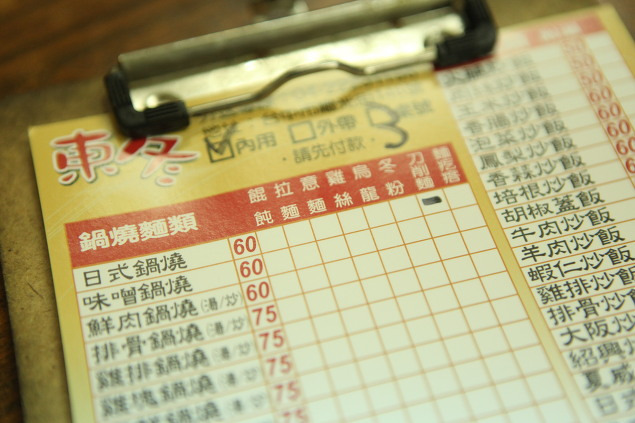 東冬
內用 外帶 3
·請先付款·
鍋燒麵類 餛飩 拉麵 意麵 雞絲 烏龍 冬粉 刀削麵 麵疙瘩
日式鍋燒 60
味噌鍋燒 60
鮮肉鍋燒(湯/炒) 60
排骨鍋燒(湯/炒) 75
雞排鍋燒(湯/炒) 75
雞塊鍋燒 75
75
香腸炒飯
泡菜炒飯
鳳梨炒飯
香辣炒飯
培根炒飯
胡椒蓋飯
牛肉炒飯
羊肉炒飯
蝦仁炒飯
雞排炒飯
排骨炒
大阪炒
紹興
夏威
日式
50
50
60
60
60
60